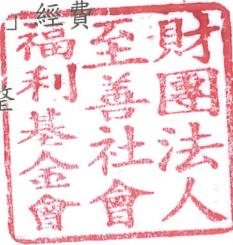 」經費
整
財團法人
至善社會
福利基金會